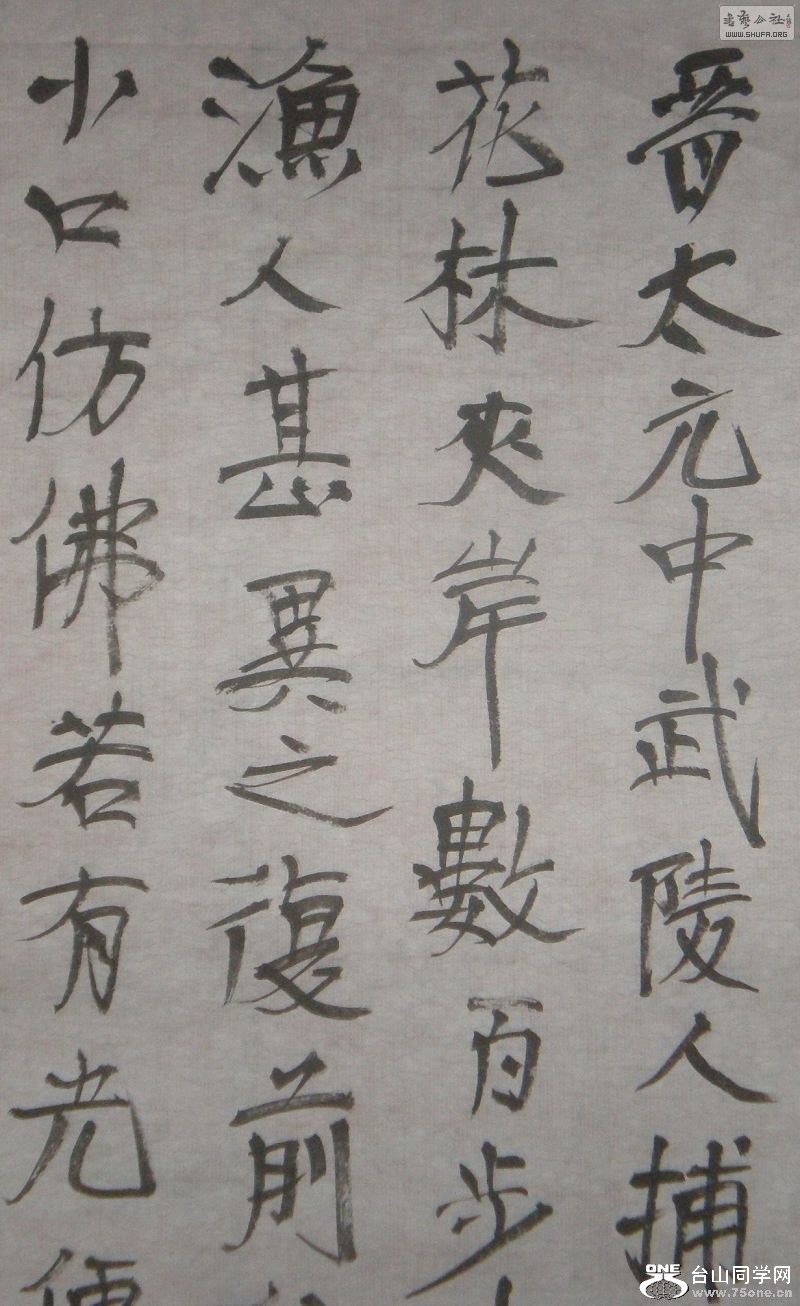 晋太元中武陵人捕
花林夾岸數百步
漁人甚異之復前
小口仿佛若有光便
書藝公社
WWW.SHUFA.ORG
ONE 台山同学网
www.75one.cn